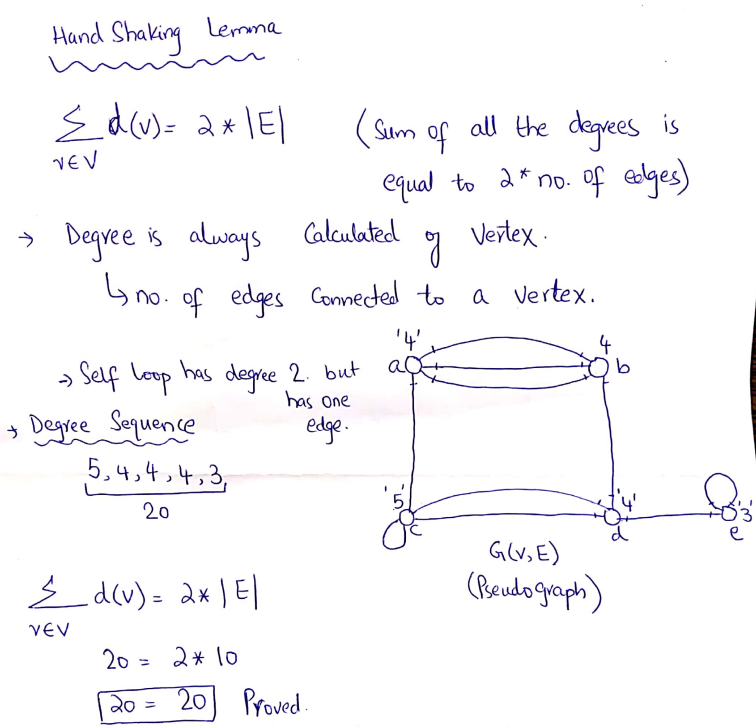 Hand Shaking Lemma
∑ d(v) = 2 * |E| (Sum of all the degrees is
v∈V equal to 2* no. of edges)
→ Degree is always Calculated of Vertex.
↳ no. of edges Connected to a vertex.
→ Self loop has degree 2. but
has one
edge.
→ Degree Sequence
5, 4, 4, 4, 3,
20
'4' 4
a b
'5' '4' '3'
c d e
G(V, E)
(Pseudograph)
∑ d(v) = 2 * |E|
v∈V
20 = 2 * 10
20 = 20 Proved.